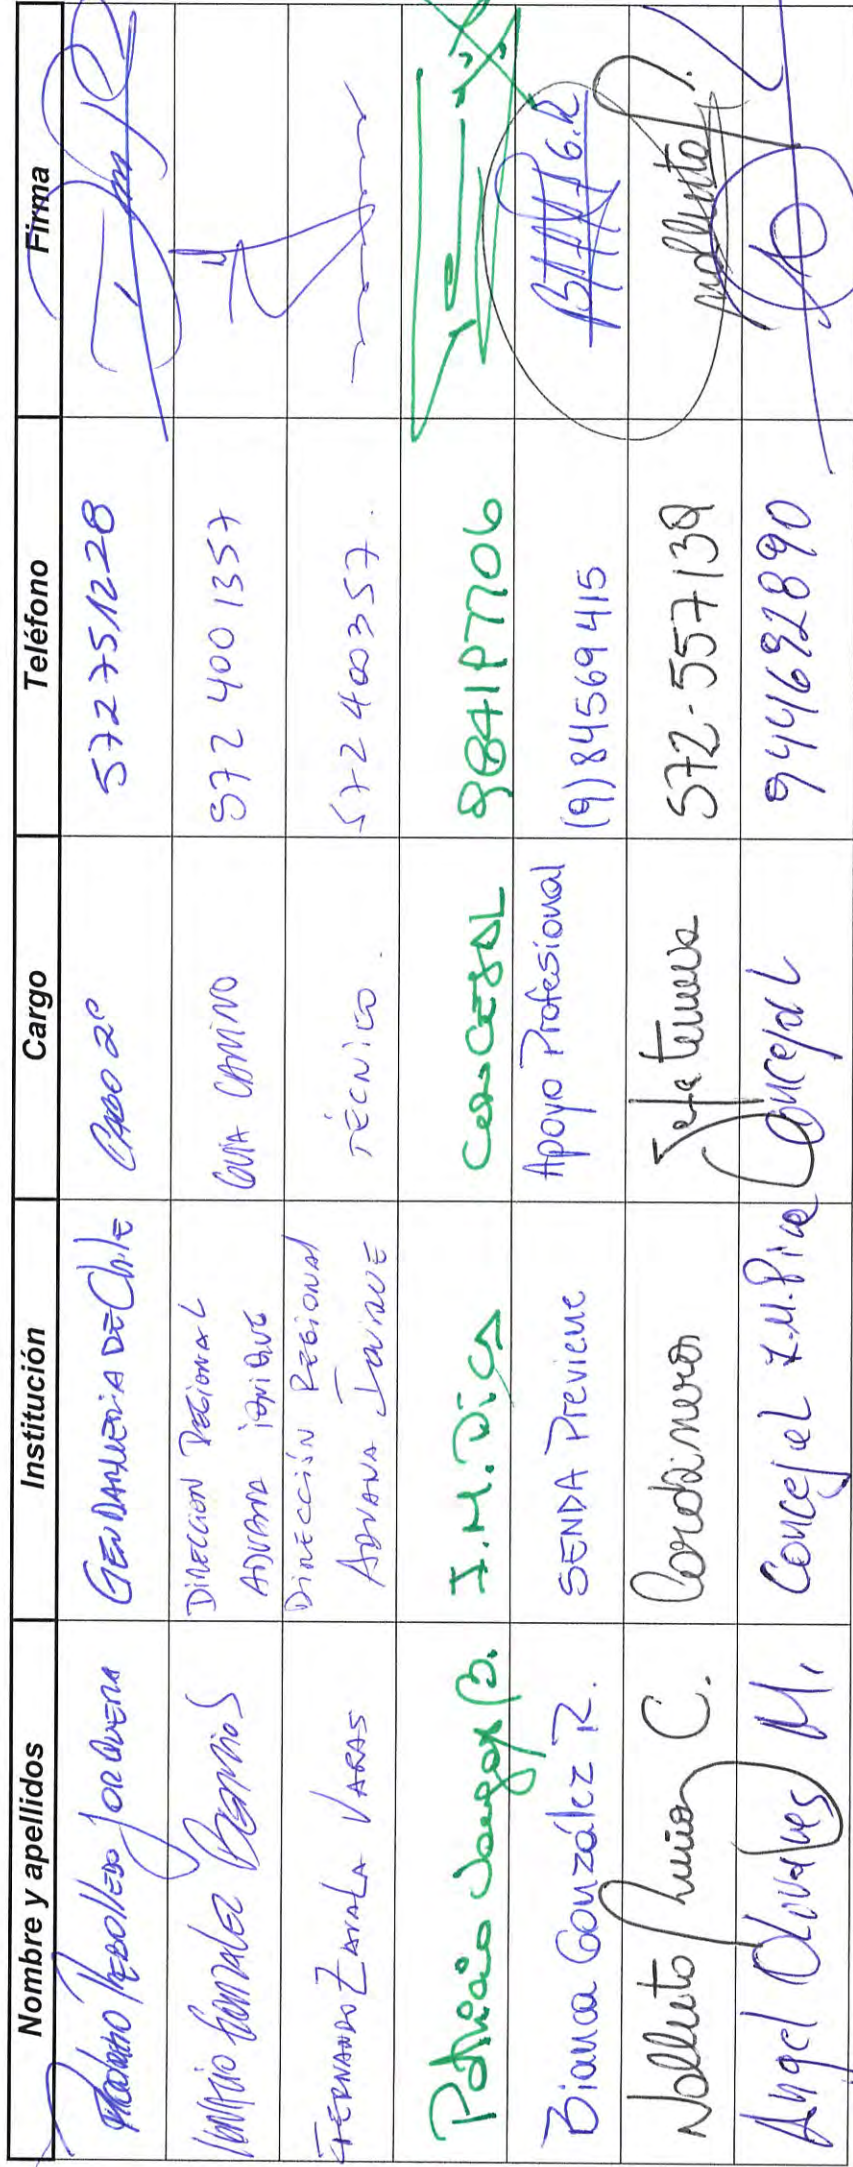 Nombre y apellidos Institución Cargo Teléfono Firma
Rodrigo Rebolledo Jorquera GENDARMERIA DE Chile CABO 2º 572751228
Ignacio González Barrios DIRECCION REGIONAL ADUANA IQUIQUE GUIA CANINO 572 4001357
FERNANDO ZAVALA VARAS DIRECCIÓN REGIONAL ADUANA IQUIQUE TÉCNICO. 572400357.
Patricio I.M. Pica CONCEJAL
Bianca González R. SENDA Previene Apoyo Profesional (9) 84569415 G.R
C. Carabineros Jefa Tenencia 572-557139
Angel Olivares M. Concejal I.M. Pica Concejal 944692890